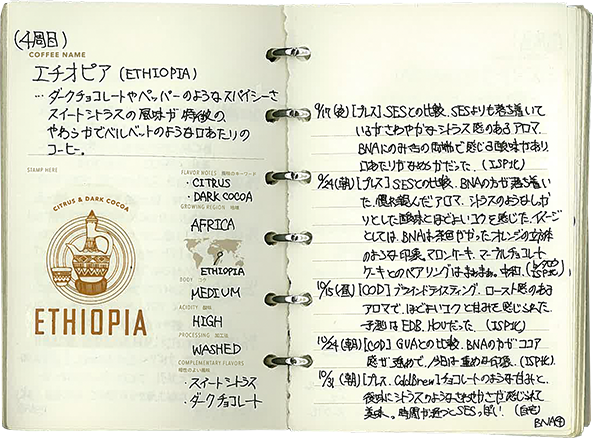 (4周目)
COFFEE NAME
エチオピア (ETHIOPIA)
…ダークチョコレートやペッパーのようなスパイシーさ
スイートシトラスの風味が特徴の、
やわらかでベルベットのような口あたりの
コーヒー。
STAMP HERE
CITRUS & DARK COCOA
ETHIOPIA
FLAVOR NOTES 風味のキーワード
・CITRUS
・DARK COCOA
GROWING REGION 地域
AFRICA
ETHIOPIA
BODY コク
MEDIUM
ACIDITY 酸味
HIGH
PROCESSING 加工法
WASHED
COMPLEMENTARY FLAVORS
相性のよい風味
・スイートシトラス
・ダークチョコレート
9/17 [プレス] SESとの比較。SESよりも落ち着いて
いるがさわやかなシトラス感のあるアロマ。
BNAにのみ舌の両端で感じる酸味があり
口あたりがなめらかだった。(ISP北)
9/24 (朝) [プレス] SESとの比較。BNAの方が落ち着い
た、アロマ。シトラスのようなしっか
りとした酸味とほどよいコクを感じた。イメージ
としては、BNAは茶色がかったオレンジの立方体
のような印象。マロンケーキ、マーブルチョコレート
ケーキとのペアリングはまあまあ。
10/15 (昼) [COD] ブラインドテイスティング。ロースト感のある
アロマで、ほどよいコクと甘みを感じられた。
予測はEDB、HOUだった。(ISP北)
10/24 (朝) [COD] GUAとの比較。BNAの方がココア
感が強めで、今日は重めな印象。(ISP北)
10/31 (朝) [プレス] ColdBrew チョコレートのような甘みと、
後味にシトラスのようなさわやかさが感じられて
美味。時間が経つとSESっぽい! (自宅)
BNA④